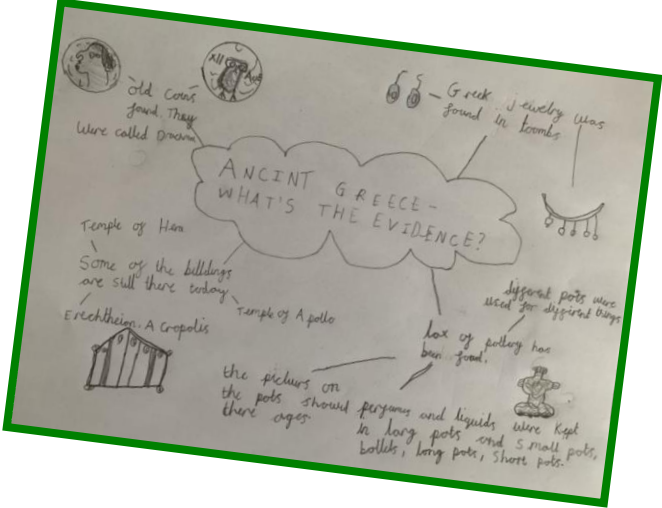 old coins
found. They
were called Dracma
XII
Greek jewelry was
found in toombs
ANCINT GREECE -
WHAT'S THE EVIDENCE?
Temple of Hera
Some of the billdings
are still there today
Temple of Apollo
Erechtheion. Acropolis
different pots were
used for different things
lox of pottery has
been found.
the pickurs on
the pots showd
there ages
perfumes and liquids were kept
in larg pots and small pots,
bottels, long pots, short pots.